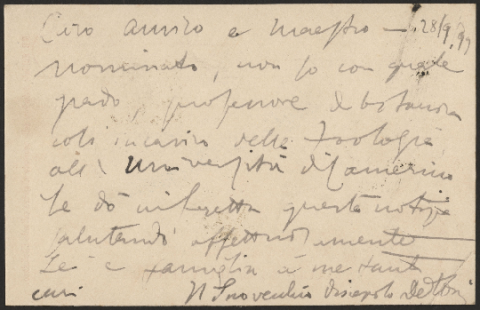 Caro amico e maestro — 28/9.97
nominato, non so con quale
grado, professore di botanica
coll'incarico della Zoologia
all'Università di Camerino
Le dò in fretta questa notizia
salutando affettuosamente
Lei e famiglia a me tanto
cari Il Suo vecchio discepolo